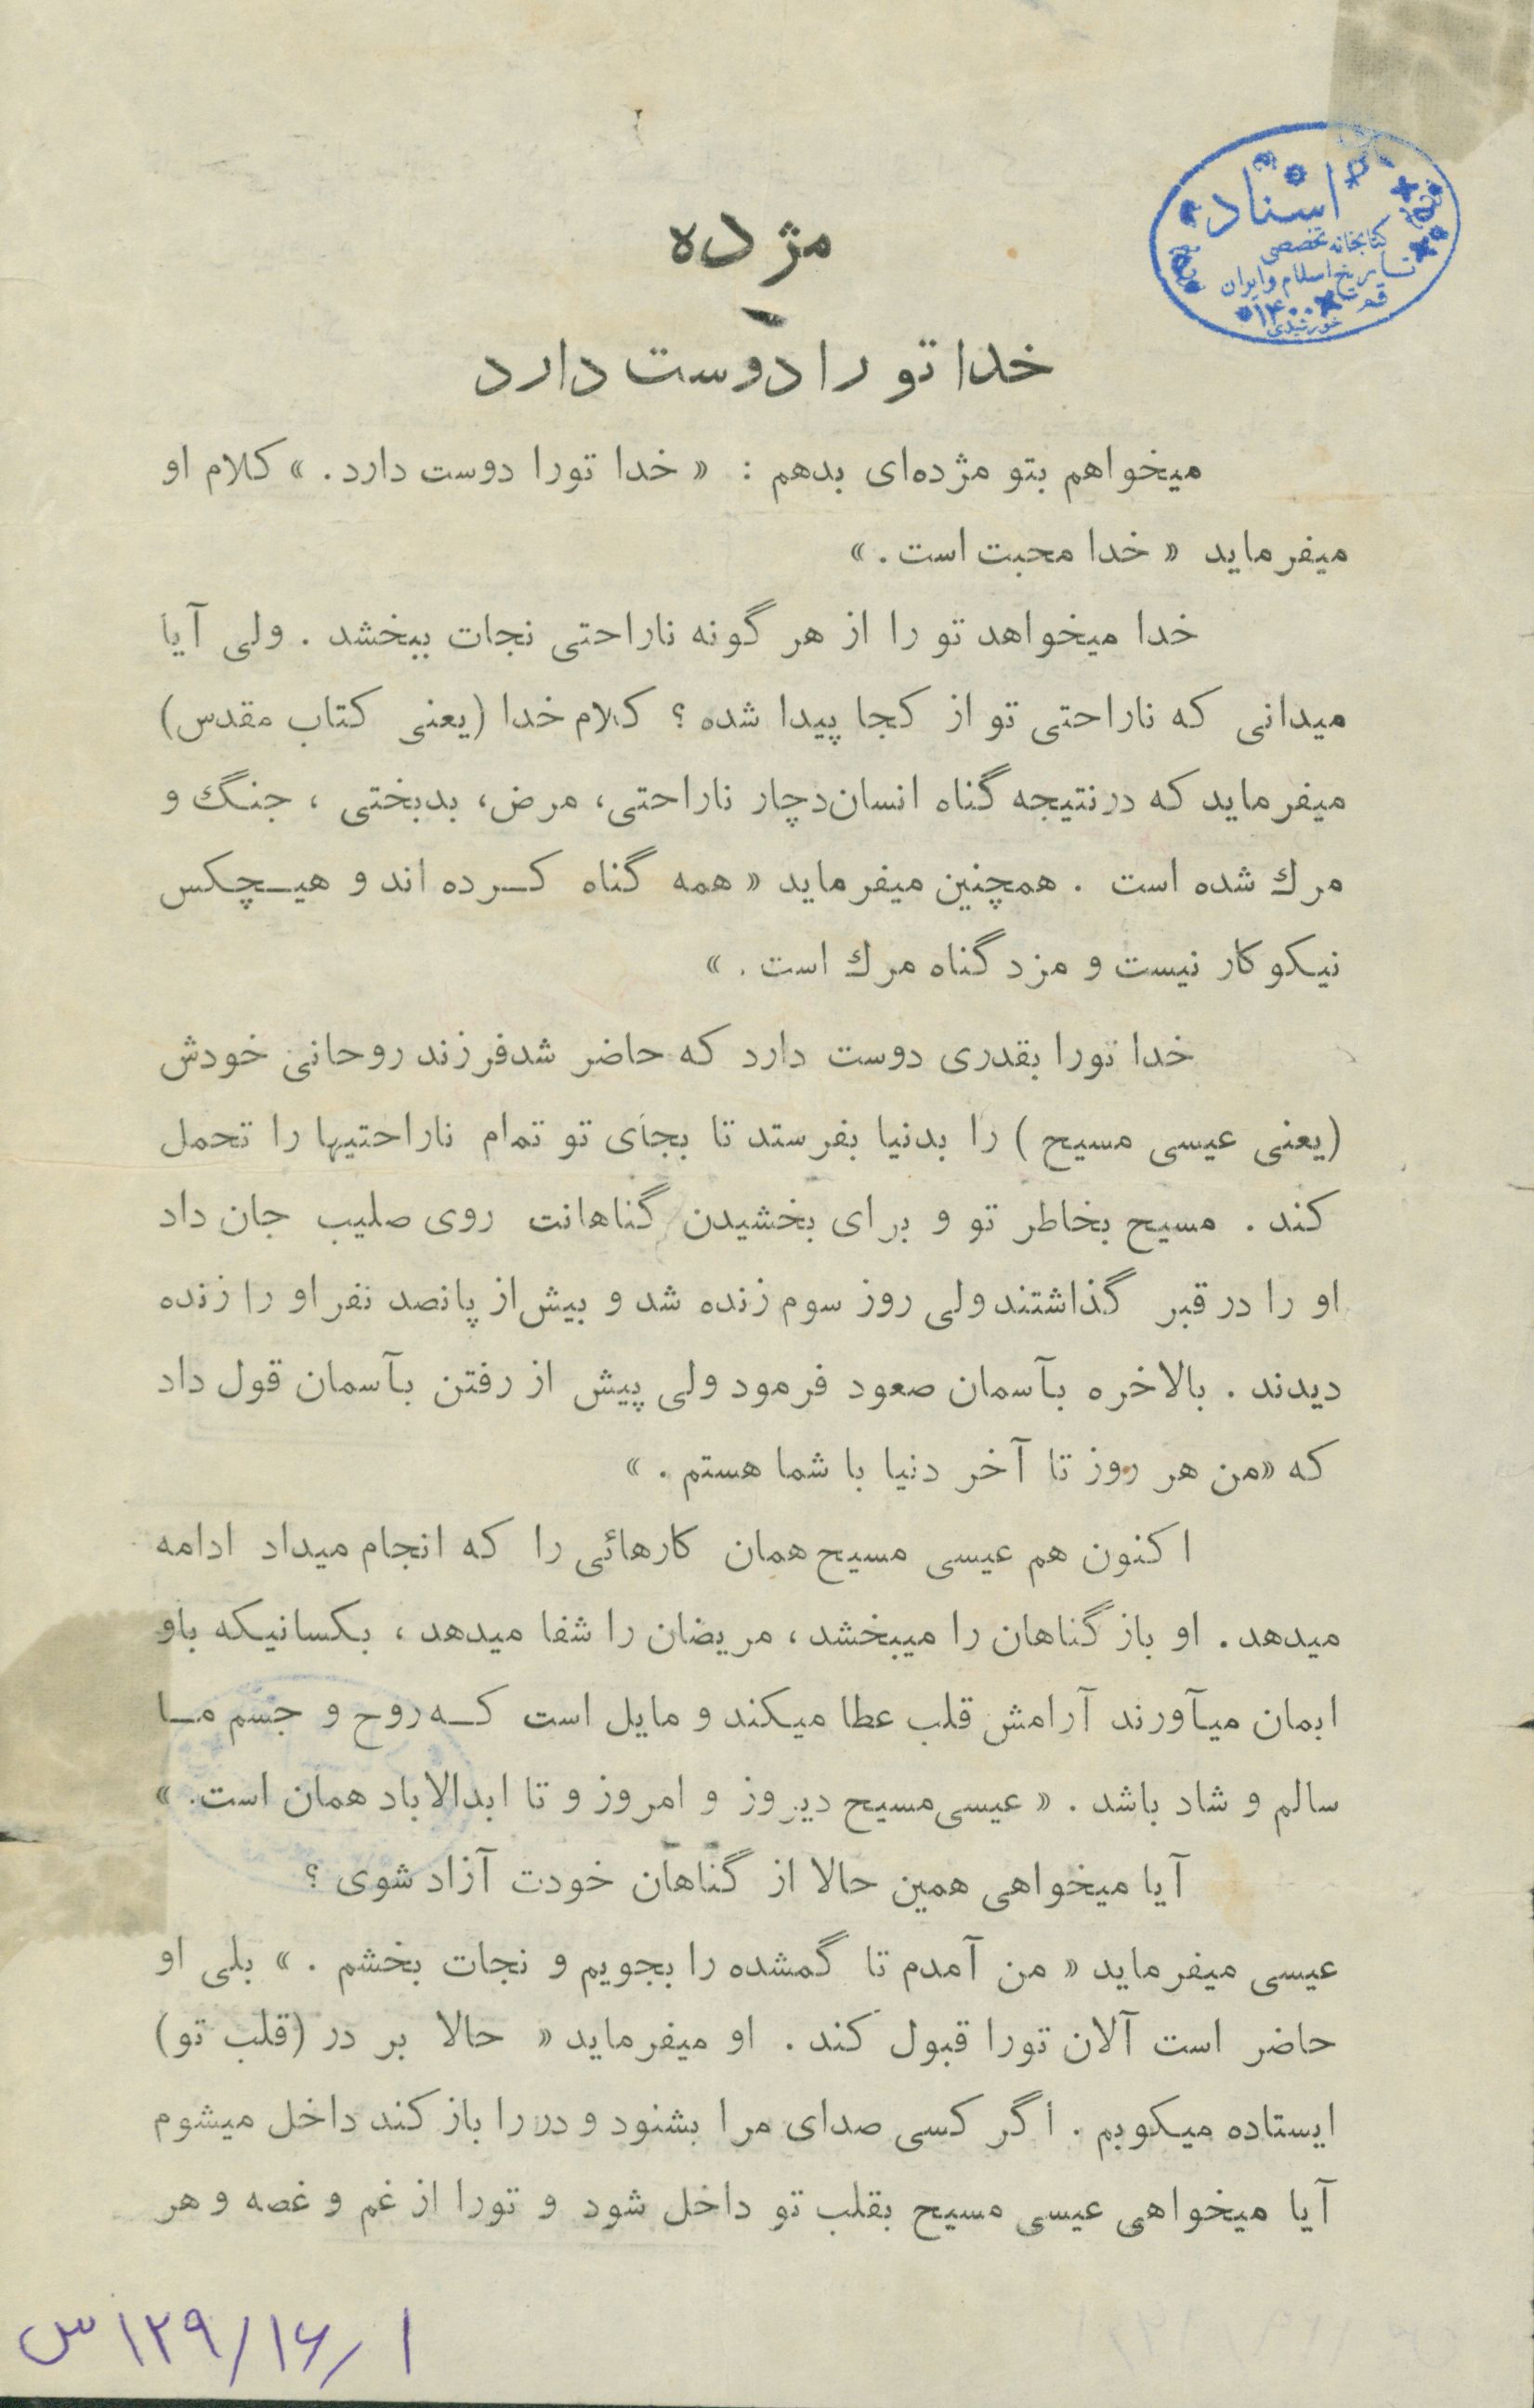 اسناد
کتابخانه تخصصی
تاریخ اسلام و ایران
قم
۱۴۰۰
خورشیدی
مژده
خدا تو را دوست دارد
میخواهم بتو مژده‌ای بدهم : « خدا تورا دوست دارد . » کلام او
میفرماید « خدا محبت است . »
خدا میخواهد تو را از هر گونه ناراحتی نجات ببخشد . ولی آیا
میدانی که ناراحتی تو از کجا پیدا شده ؟ کلام خدا (یعنی کتاب مقدس)
میفرماید که درنتیجه گناه انسان دچار ناراحتی، مرض، بدبختی ، جنگ و
مرك شده است . همچنین میفرماید « همه گناه کـرده اند و هیـچکس
نیکو کار نیست و مزد گناه مرك است . »
خدا تورا بقدری دوست دارد که حاضر شد فرزند روحانی خودش
(یعنی عیسی مسیح ) را بدنیا بفرستد تا بجای تو تمام ناراحتیها را تحمل
کند . مسیح بخاطر تو و برای بخشیدن گناهانت روی صلیب جان داد
او را در قبر گذاشتند ولی روز سوم زنده شد و بیش از پانصد نفر او را زنده
دیدند . بالاخره بآسمان صعود فرمود ولی پیش از رفتن بآسمان قول داد
که «من هر روز تا آخر دنیا با شما هستم . »
اکنون هم عیسی مسیح همان کارهائی را که انجام میداد ادامه
میدهد . او باز گناهان را میبخشد ، مریضان را شفا میدهد ، بکسانیکه باو
ایمان میآورند آرامش قلب عطا میکند و مایل است کـه روح و جسم مـا
سالم و شاد باشد . « عیسی مسیح دیروز و امروز و تا ابدالاباد همان است. »
آیا میخواهی همین حالا از گناهان خودت آزاد شوی ؟
عیسی میفرماید « من آمدم تا گمشده را بجویم و نجات بخشم . » بلی او
حاضر است آلان تورا قبول کند . او میفرماید « حالا بر در (قلب تو)
ایستاده میکوبم . اگر کسی صدای مرا بشنود و در را باز کند داخل میشوم
آیا میخواهی عیسی مسیح بقلب تو داخل شود و تورا از غم و غصه و هر
۱۲۹/۱۶/۱س